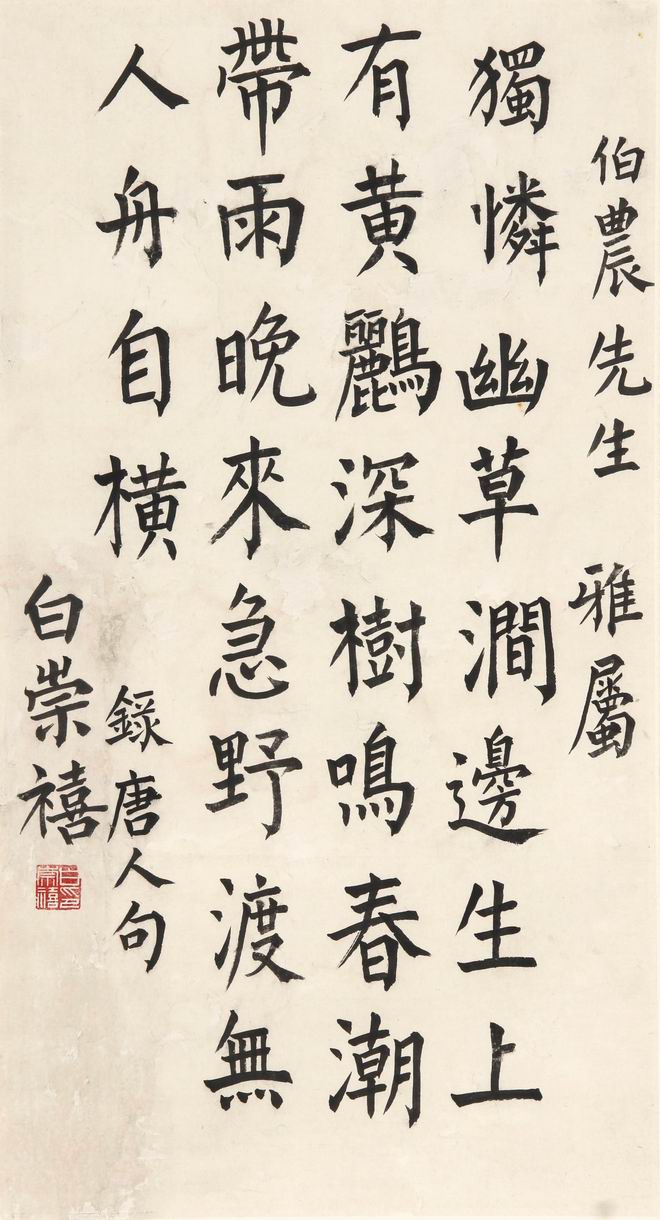 伯農先生 雅屬
獨憐幽草澗邊生上
有黄鸝深樹鳴春潮
帶雨晚來急野渡無
人舟自橫
錄唐人句
白崇禧
白崇禧印